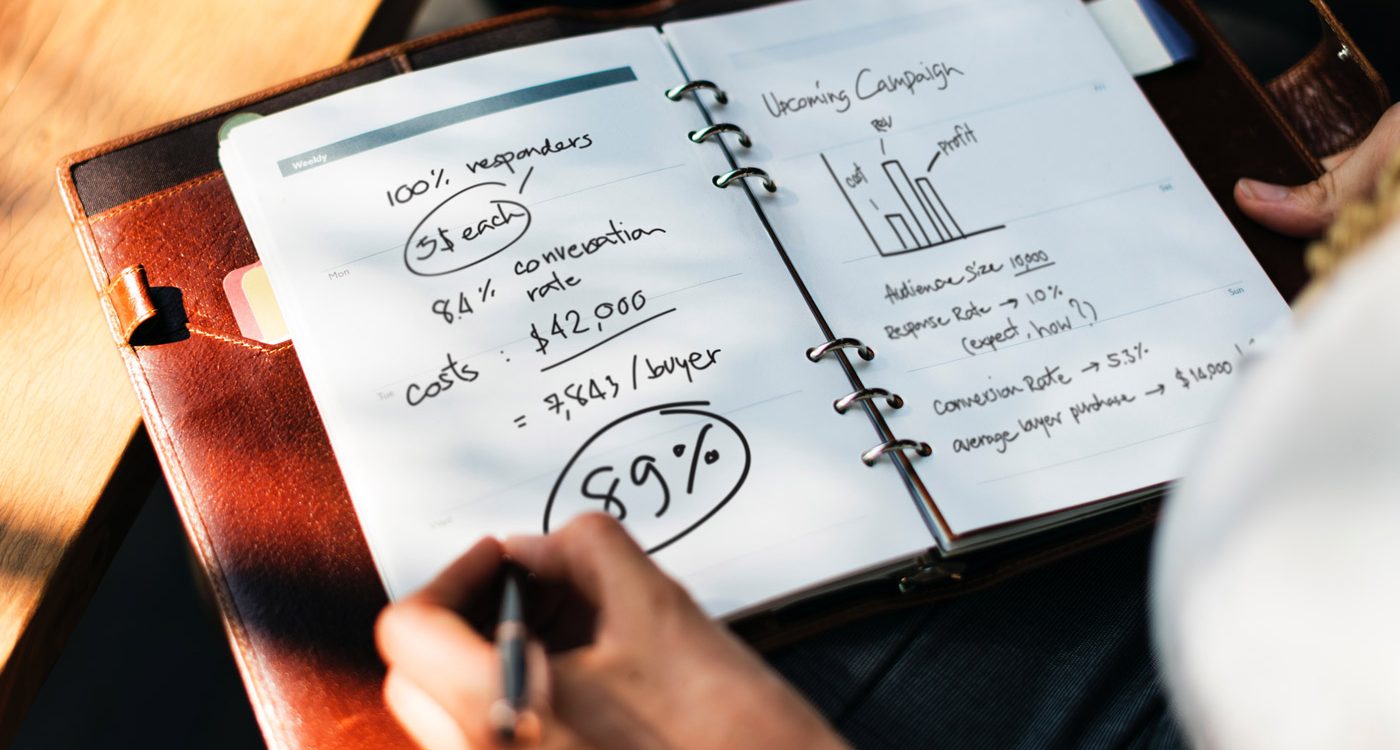 Weekly
100% responders
5$ each
Mon
8.4% conversation
rate
Tue
costs : $42,000
= 7,843 / buyer
89%
Wed
Upcoming Campaign
Fri
Rev
cost
profit
Sat
Audience Size 10,000
Response Rate → 1.0%
(expect, how?)
Sun
Conversion Rate → 5.3%
average buyer purchase → $14,000